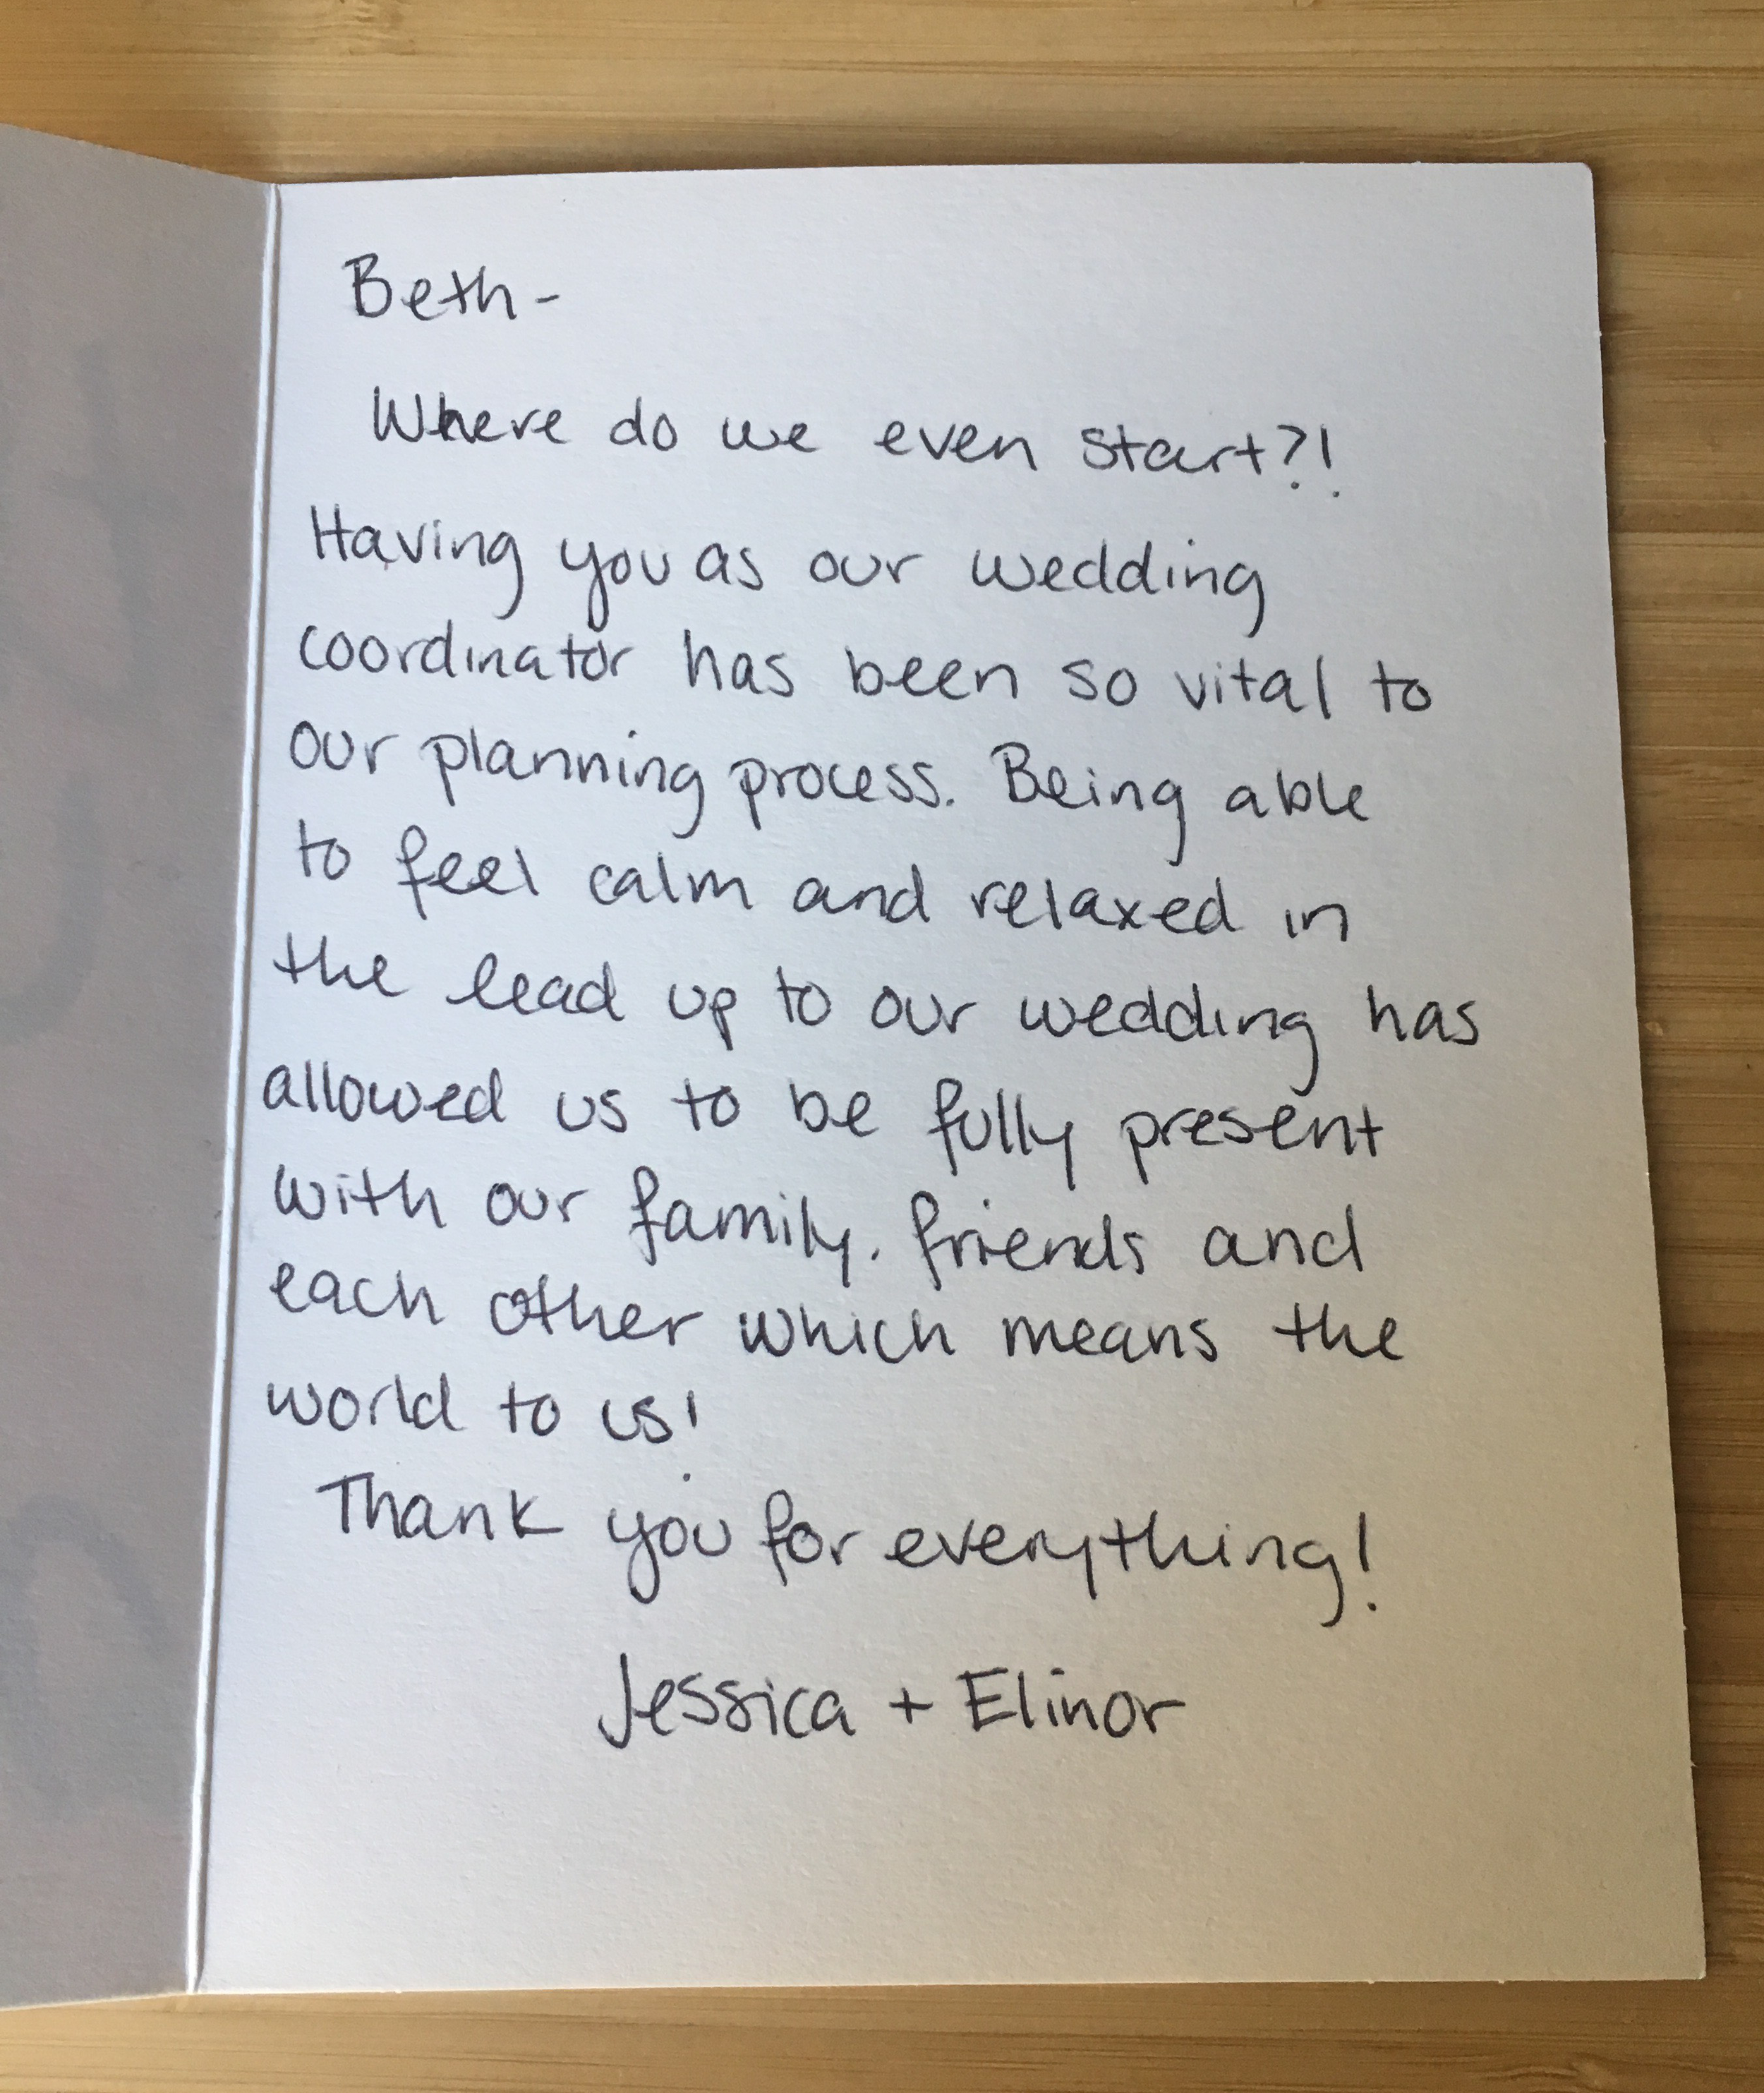 Beth-
Where do we even start?!
Having you as our wedding
coordinator has been so vital to
our planning process. Being able
to feel calm and relaxed in
the lead up to our wedding has
allowed us to be fully present
with our family, friends and
each other which means the
world to us!
Thank you for everything!
Jessica + Elinor